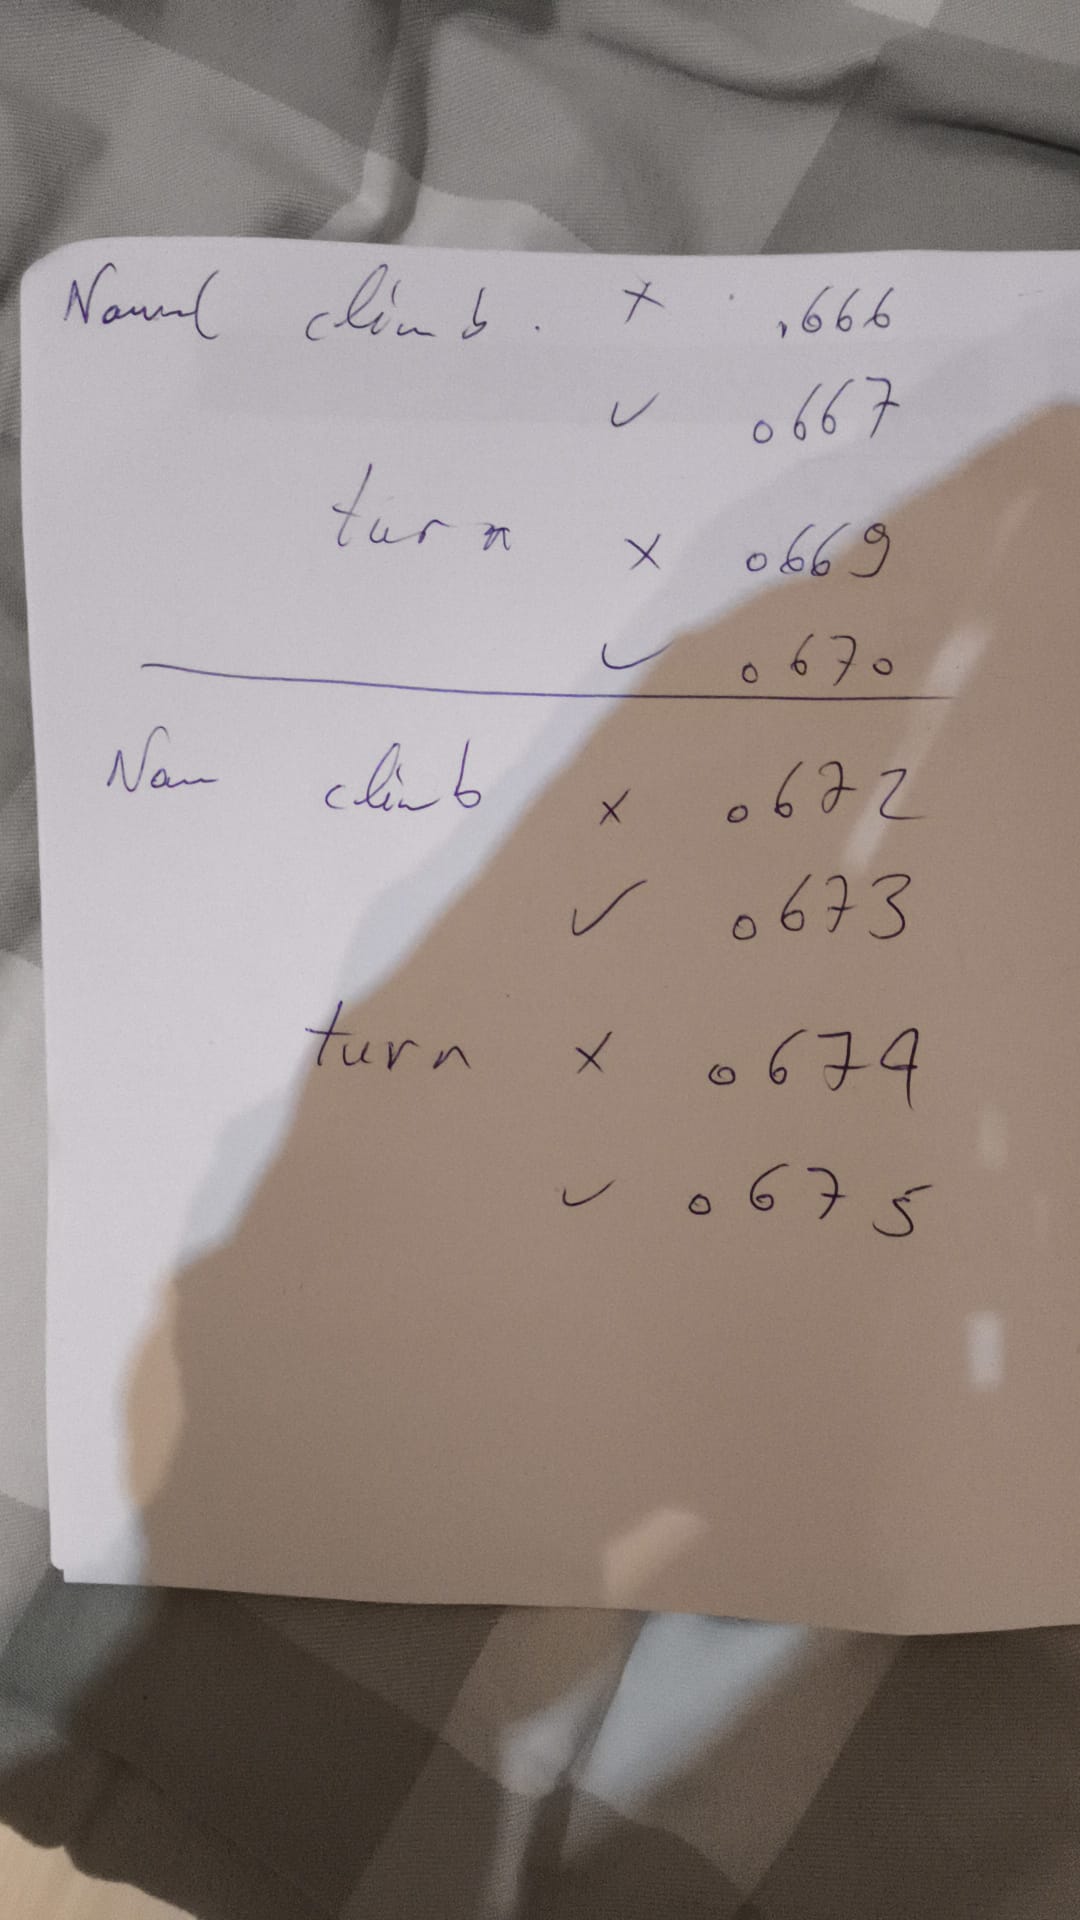 climb. × .666
✓ 0667
turn × 0669
✓ 0670
climb × 0672
✓ 0673
turn × 0674
✓ 0675